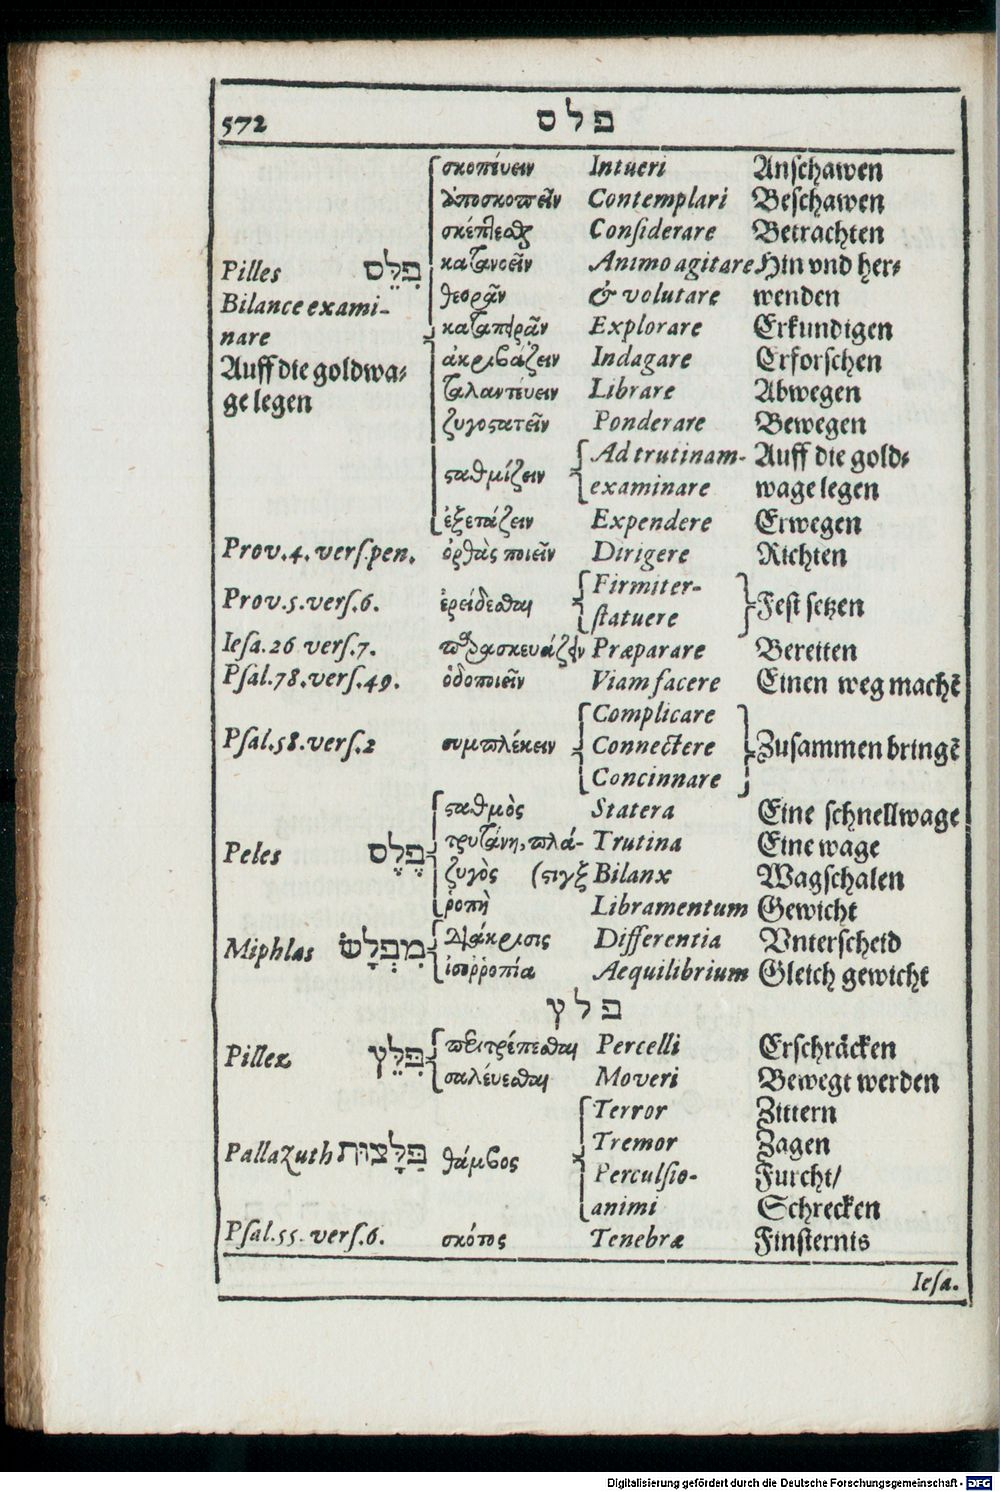 572 פלס
σκοπεύειν Intueri Anschawen
ἀποσκοπεῖν Contemplari Beschawen
σκέπτεσθαι Considerare Betrachten
Pilles פִּלֵּס κατανοεῖν Animo agitare Hin vnd her⸗
Bilance exami- θεωρᾶν & volutare wenden
nare Explorare Erkundigen
Auff die goldwa⸗ ἀκριβάζειν Indagare Erforschen
ge legen ταλαντεύειν Librare Abwegen
ζυγοστατεῖν Ponderare Bewegen
σταθμίζειν Ad trutinam- Auff die gold⸗
examinare wage legen
ἐξετάζειν Expendere Erwegen
Prov.4. vers.pen. ὀρθὰς ποιεῖν Dirigere Richten
Prov.5.vers.6. ἐρείδεσθαι Firmiter-
statuere Fest setzen
Iesa.26 vers.7. παρασκευάζειν Præparare Bereiten
Psal.78.vers.49. ὁδοποιεῖν Viam facere Einen weg machẽ
Psal.58.vers.2 συμπλέκειν Complicare
Connectere Zusammen bringẽ
Concinnare
σταθμὸς Statera Eine schnellwage
Peles פֶּלֶס τρυτάνη, πλά- Trutina Eine wage
ζυγὸς (στιγξ Bilanx Wagschalen
ῥοπὴ Libramentum Gewicht
Miphlas מִפְלָשׂ διάκρισις Differentia Vnterscheid
ἰσοῤῥοπία Aequilibrium Gleich gewicht
פלץ
Pillez פִּלֵּץ περιτρέπεσθαι Percelli Erschräcken
σαλέυεσθαι Moveri Bewegt werden
Terror Zittern
Pallazuth פַּלָּצוּת θάμβος Tremor Zagen
Perculsio- Furcht/
animi Schrecken
Psal.55. vers.6. σκότος Tenebræ Finsternis
Iesa.
Digitalisierung gefördert durch die Deutsche Forschungsgemeinschaft - DFG